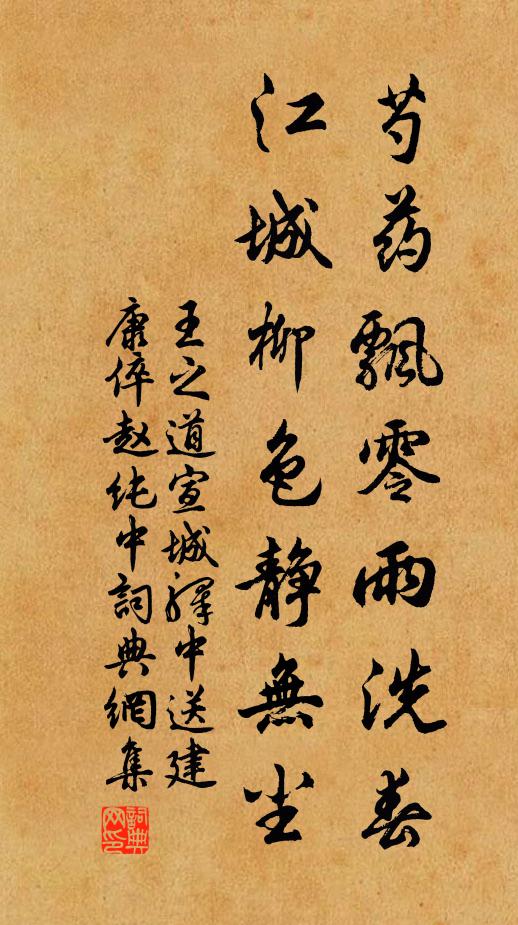 芍药飄零雨洗春
江城柳色静無尘
王之道宣城驿中送建
康倅赵纯中詞典網集
詞典网印